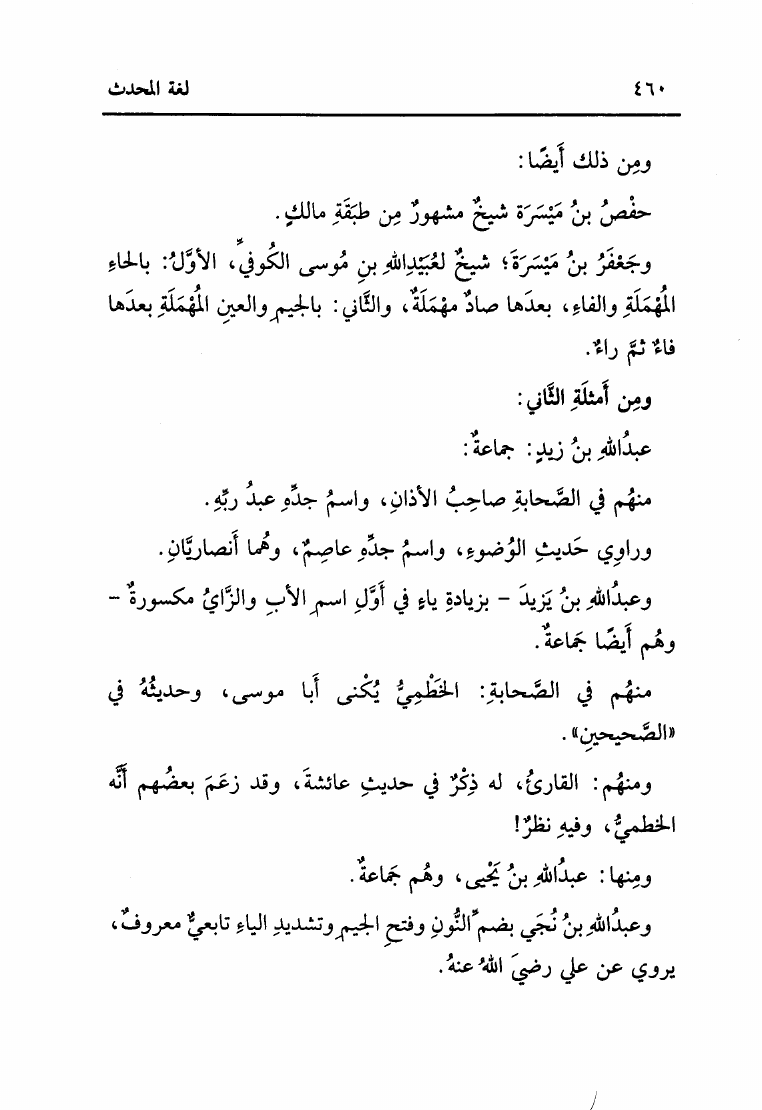 ٤٦٠ لغة المحدث
ومِن ذلك أَيضًا:
حفْصُ بنُ مَيْسَرَةَ شيخٌ مشهورٌ مِن طبَقَةِ مالكٍ.
وجَعْفَرُ بنُ مَيْسَرَةَ؛ شيخٌ لعُبَيْدِاللهِ بنِ مُوسى الكُوفيِّ، الأوَّلُ: بالحاءِ
المُهْمَلَةِ والفاءِ، بعدَها صادٌ مهْمَلَةٌ، والثَّاني: بالجيمِ والعينِ المُهْمَلَةِ بعدَها
فاءٌ ثمَّ راءٌ.
ومِن أَمثلَةِ الثَّاني:
عبدُاللهِ بنُ زيدٍ: جماعةٌ:
منهُم في الصَّحابةِ صاحِبُ الأذانِ، واسمُ جدِّهِ عبدُ ربِّهِ.
وراوِي حَديثِ الوُضوءِ، واسمُ جدِّهِ عاصِمٌ، وهُما أَنصاريَّانِ.
وعبدُاللهِ بنُ يَزيدَ – بزيادةِ ياءٍ في أوَّلِ اسمِ الأبِ والزَّايُ مكسورةٌ –
وهُم أَيضًا جَماعةٌ.
منهُم في الصَّحابةِ: الخَطْمِيُّ يُكْنى أَبا موسى، وحديثُهُ في
«الصَّحيحينِ».
ومنهُم: القارئُ، له ذِكْرٌ في حديثِ عائشةَ، وقد زعَمَ بعضُهم أنَّه
الخطميُّ، وفيهِ نظرٌ!
ومِنها: عبدُاللهِ بنُ يَحْيى، وهُم جَماعةٌ.
وعبدُاللهِ بنُ نُجَي بضم النُّونِ وفتحِ الجيمِ وتشديدِ الياءِ تابعيٌّ معروفٌ،
يروي عن علي رضيَ اللهُ عنهُ.